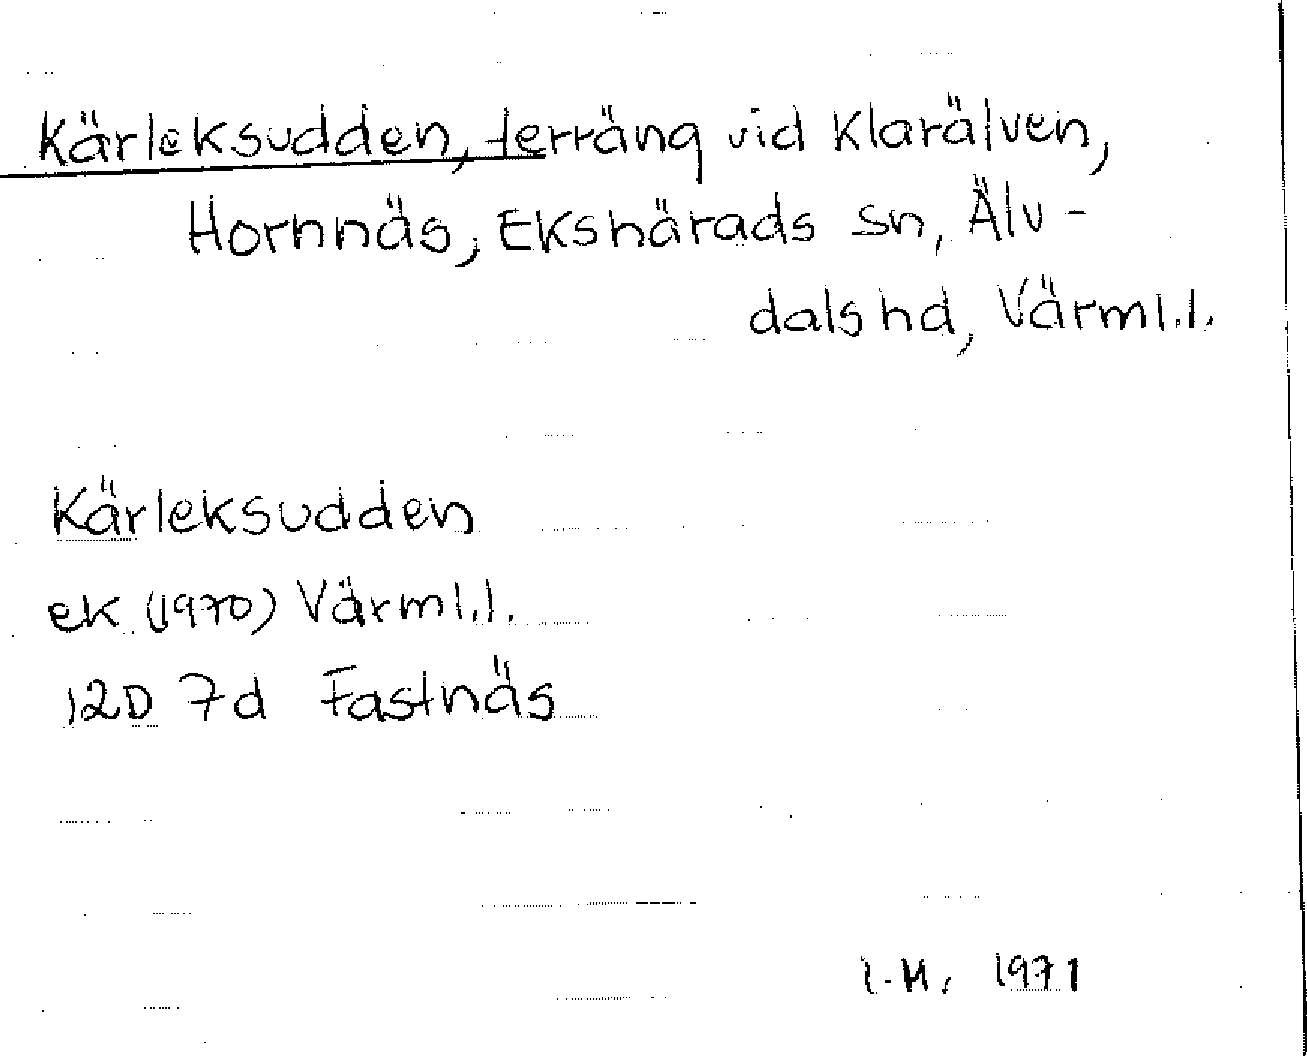 Kärleksudden, terräng vid Klarälven,
Hornnäs, Ekshärads sn, Älv-
dals hd, Värml.l.
Kärleksudden
ek (1970) Värml.l.
12D 7d Fastnäs
I.H. 1971